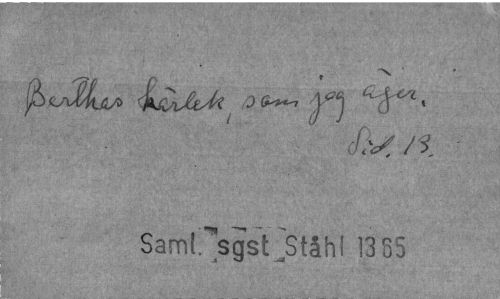 Berthas kärlek, som jag äger.
Sid. 13.
Saml. sgst Ståhl 1365